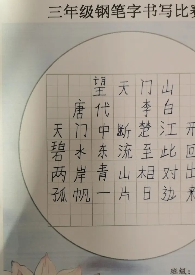 三年级钢笔字书写比赛
望天门山
唐代李白
天门中断楚江开
碧水东流至此回
两岸青山相对出
孤帆一片日边来
班级: